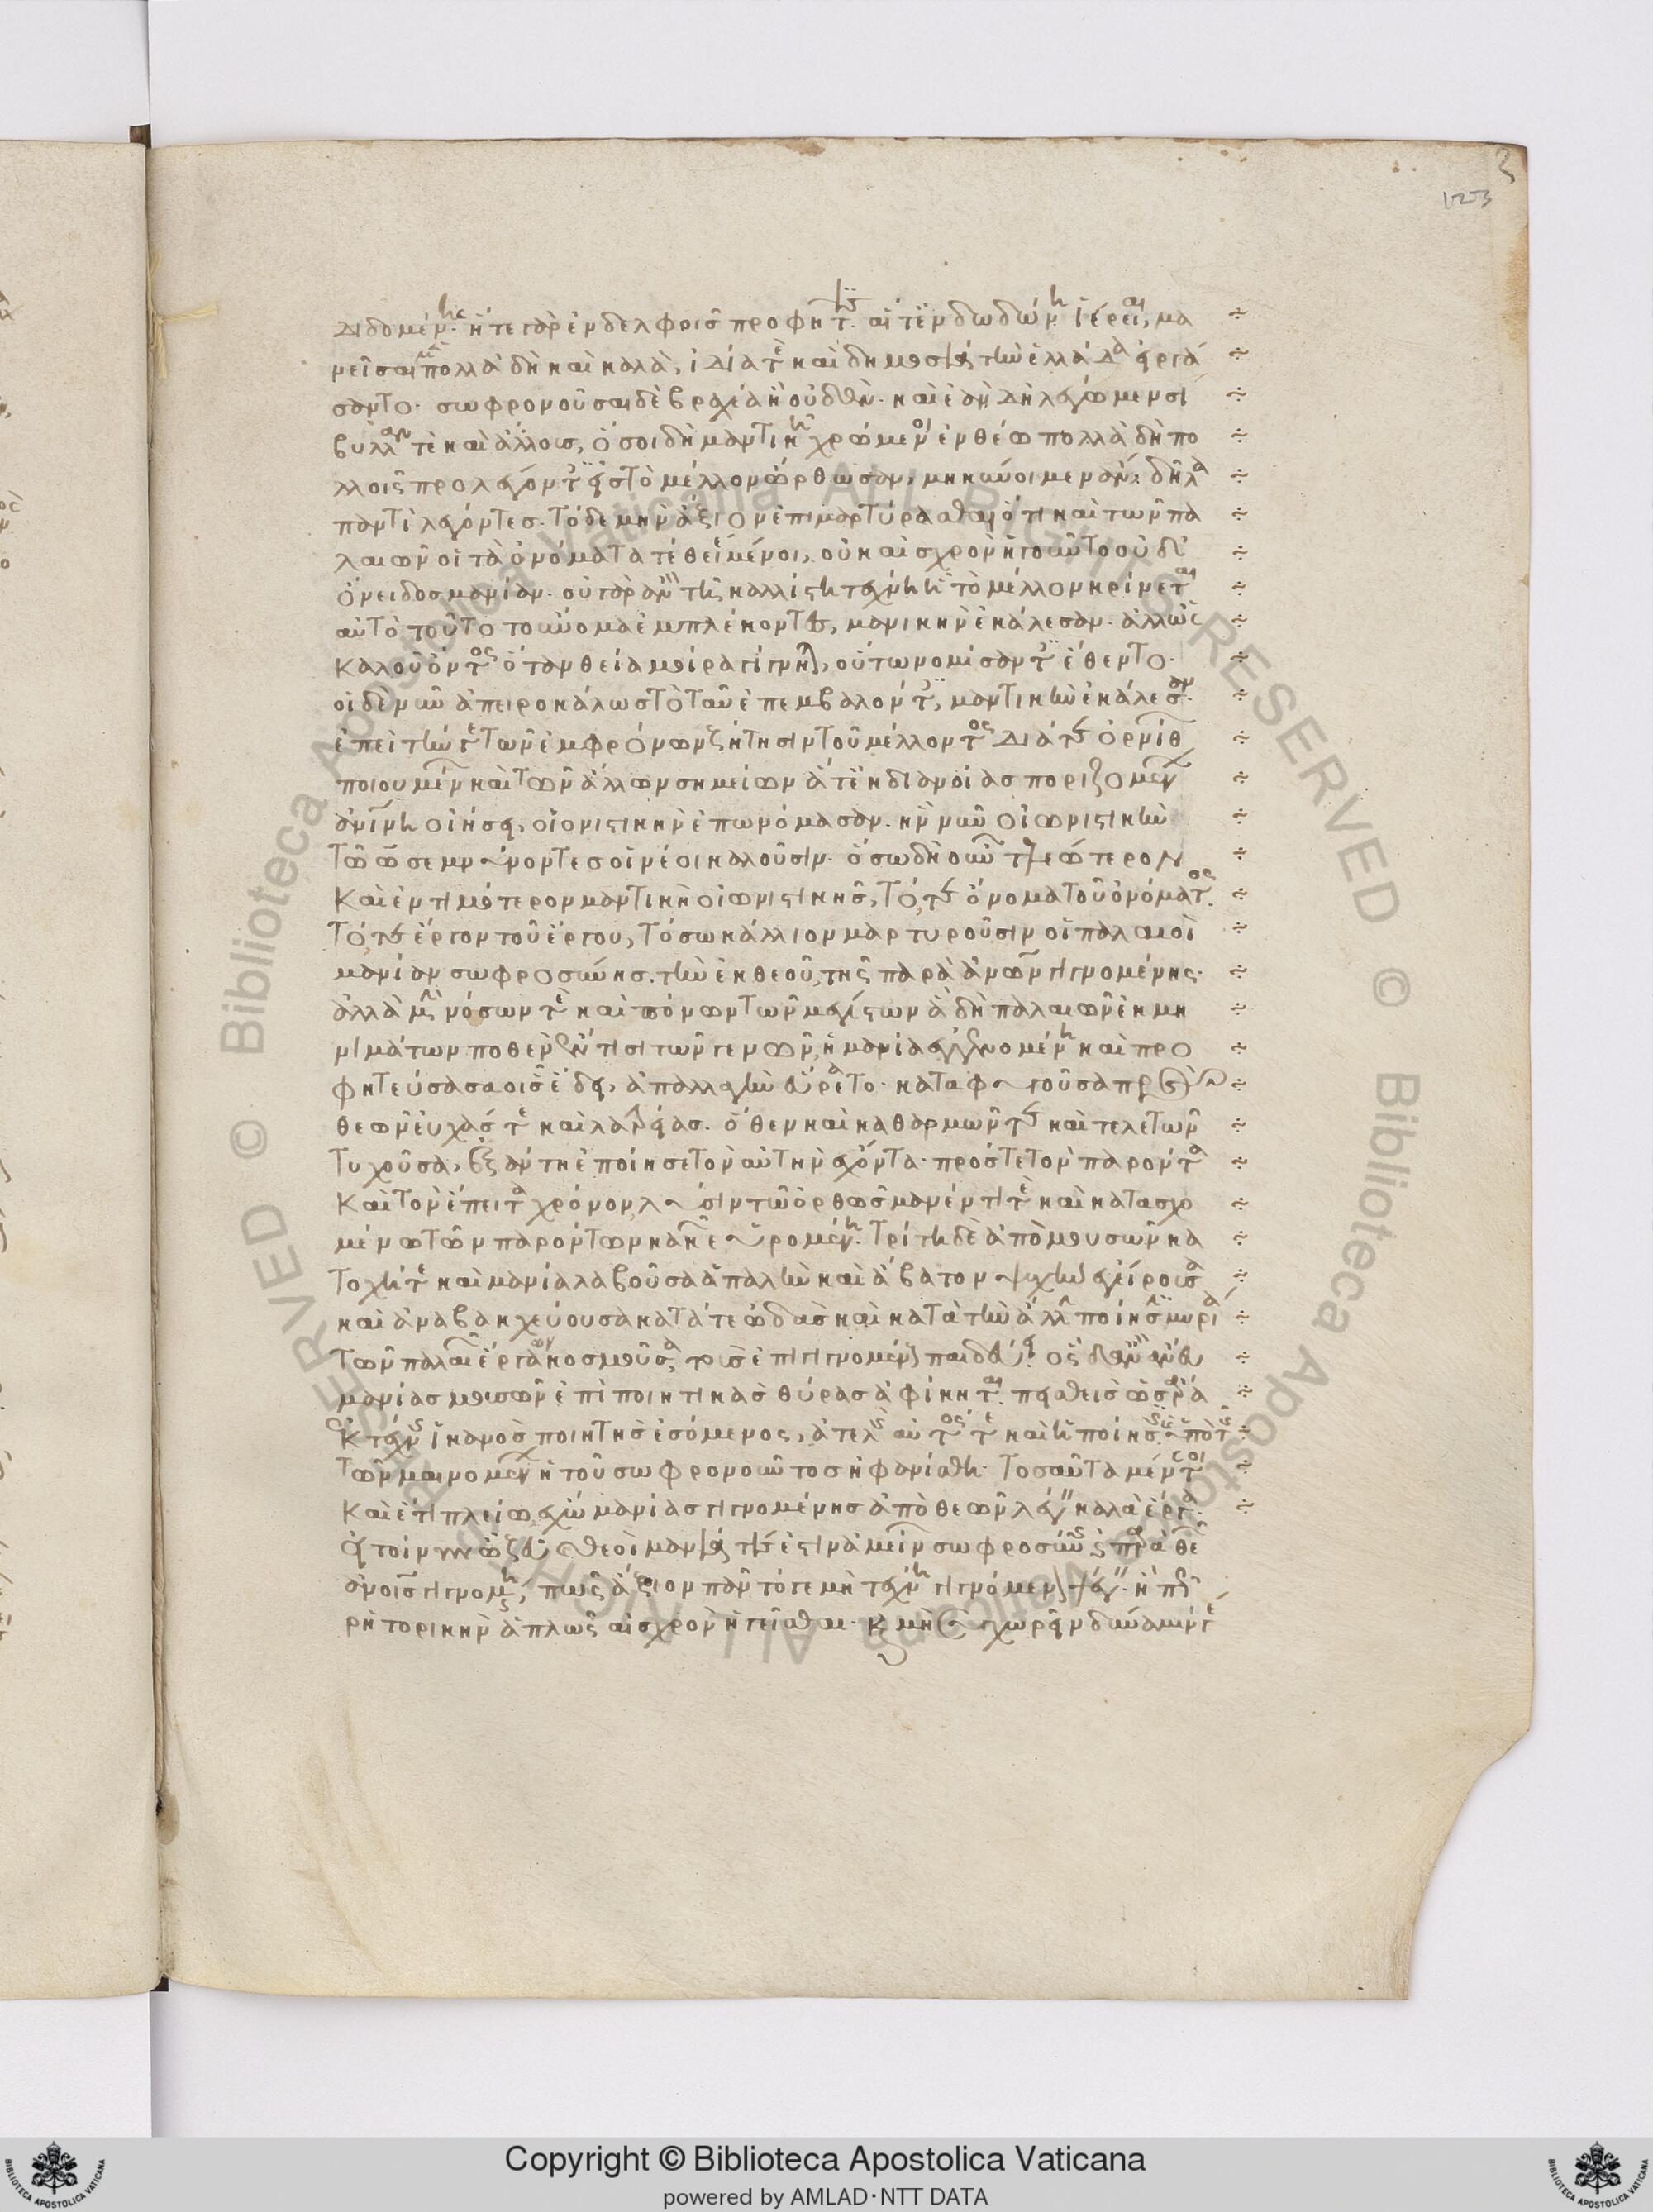 3
123
διδομένης· ἥ τε γὰρ ἐν δελφοῖς προφῆτις· αἵ τ' ἐν δωδώνη ἱέρειαι, μα
νεῖσαι μὲν πολλὰ δὴ καὶ καλὰ, ἰδία τὲ καὶ δημοσία τὴν ἑλλάδα εἰργά
σαντο· σωφρονοῦσαι δὲ βραχέα ἢ οὐδέν· καὶ ἐὰν δὴ λέγωμεν σί
βυλλαν τὲ καὶ ἄλλους, ὅσοι δὴ μαντικῆ χρώμενοι ἐνθέω πολλὰ δὴ πο
λλοῖς προλέγοντες εἰς τὸ μέλλον ὤρθωσαν, μηκύνοιμεν ἄν· δῆλα
παντὶ λέγοντες. τόδε μὴν ἄξιον ἐπιμαρτύρασθαι, ὅτι καὶ τῶν πα
λαιῶν οἱ τὰ ὀνόματα τεθειμένοι, οὐκ αἰσχρὸν ἡγοῦντο οὐδ'
ὄνειδος μανίαν· οὐ γὰρ ἂν τῆ καλλίστη τέχνη ἧ τὸ μέλλον κρίνεται
αὐτὸ τοῦτο τοὔνομα ἐμπλέκοντες, μανικὴν ἐκάλεσαν· ἀλλ' ὡς
καλοῦ ὄντος ὅταν θεία μοίρα γίγνηται, οὕτω νομίσαντες ἔθεντο·
οἱ δὲ νῦν ἀπειροκάλως τὸ ταῦ ἐπεμβαλόντες, μαντικὴν ἐκάλεσαν·
ἐπεὶ τήν γε τῶν ἐμφρόνων ζήτησιν τοῦ μέλλοντος διά τε ὀρνίθων
ποιουμένων καὶ τῶν ἄλλων σημείων ἅτ' ἐκ διανοίας ποριζομένων
ἀνθρωπίνη οἰήσει, οἰονιστικὴν ἐπωνόμασαν· ἣν νῦν οἰωνιστικὴν
τῶ ω σεμνύνοντες οἱ νέοι καλοῦσιν· ὅσω δὴ οὖν τελεώτερον
καὶ ἐντιμότερον μαντικὴ οἰωνιστικῆς, τό τε ὄνομα τοῦ ὀνόματος
τό τε ἔργον τοῦ ἔργου, τόσω κάλλιον μαρτυροῦσιν οἱ παλαιοὶ
μανίαν σωφροσύνης. τὴν ἐκ θεοῦ, τῆς παρὰ ἀνθρώπων γιγνομένης·
ἀλλὰ μὴν νόσων τὲ καὶ πόνων τῶν μεγίστων ἃ δὴ παλαιῶν ἐκ μη
νιμάτων ποθὲν ἔν τισι τῶν γενῶν, ἡ μανία ἐγγενομένη καὶ προ
φητεύσασα οἷς ἔδει, ἀπαλλαγὴν εὕρετο· καταφυγοῦσα πρὸς
θεῶν εὐχάς τε καὶ λατρείας. ὅθεν καὶ καθαρμῶν τε καὶ τελετῶν
τυχοῦσα, ἐξάντη ἐποίησε τὸν αὐτὴν ἔχοντα· πρός τε τὸν παρόντα
καὶ τὸν ἔπειτα χρόνον, λύσιν τῶ ὀρθῶς μανέντι τὲ καὶ κατασχο
μένω τῶν παρόντων κακῶν εὑρομένη. τρίτη δὲ ἀπὸ μουσῶν κα
τοχή τε καὶ μανία λαβοῦσα ἁπαλὴν καὶ ἄβατον ψυχὴν ἐγείρουσα
καὶ ἀναβακχεύουσα κατά τε ὠδὰς καὶ κατὰ τὴν ἄλλην ποίησιν μυρία
τῶν παλαιῶν ἔργα κοσμοῦσα, τοὺς ἐπιγιγνομένους παιδεύει. ὃς δ' ἂν ἄνευ
μανίας μουσῶν ἐπὶ ποιητικὰς θύρας ἀφίκηται πεισθεὶς ὡς ἄρα
ἐκ τέχνης ἱκανὸς ποιητὴς ἐσόμενος, ἀτελὴς αὐτός τε καὶ ἡ ποίησις ὑπὸ τῆς
τῶν μαινομένων ἡ τοῦ σωφρονοῦντος ἠφανίσθη· τοσαῦτα μέντοι
καὶ ἔτι πλείω ἔχω μανίας γιγνομένης ἀπὸ θεῶν λέγειν καλὰ ἔργα.
ῥητορικὴν ἁπλῶς αἰσχρὸν ἡγεῖσθαι·